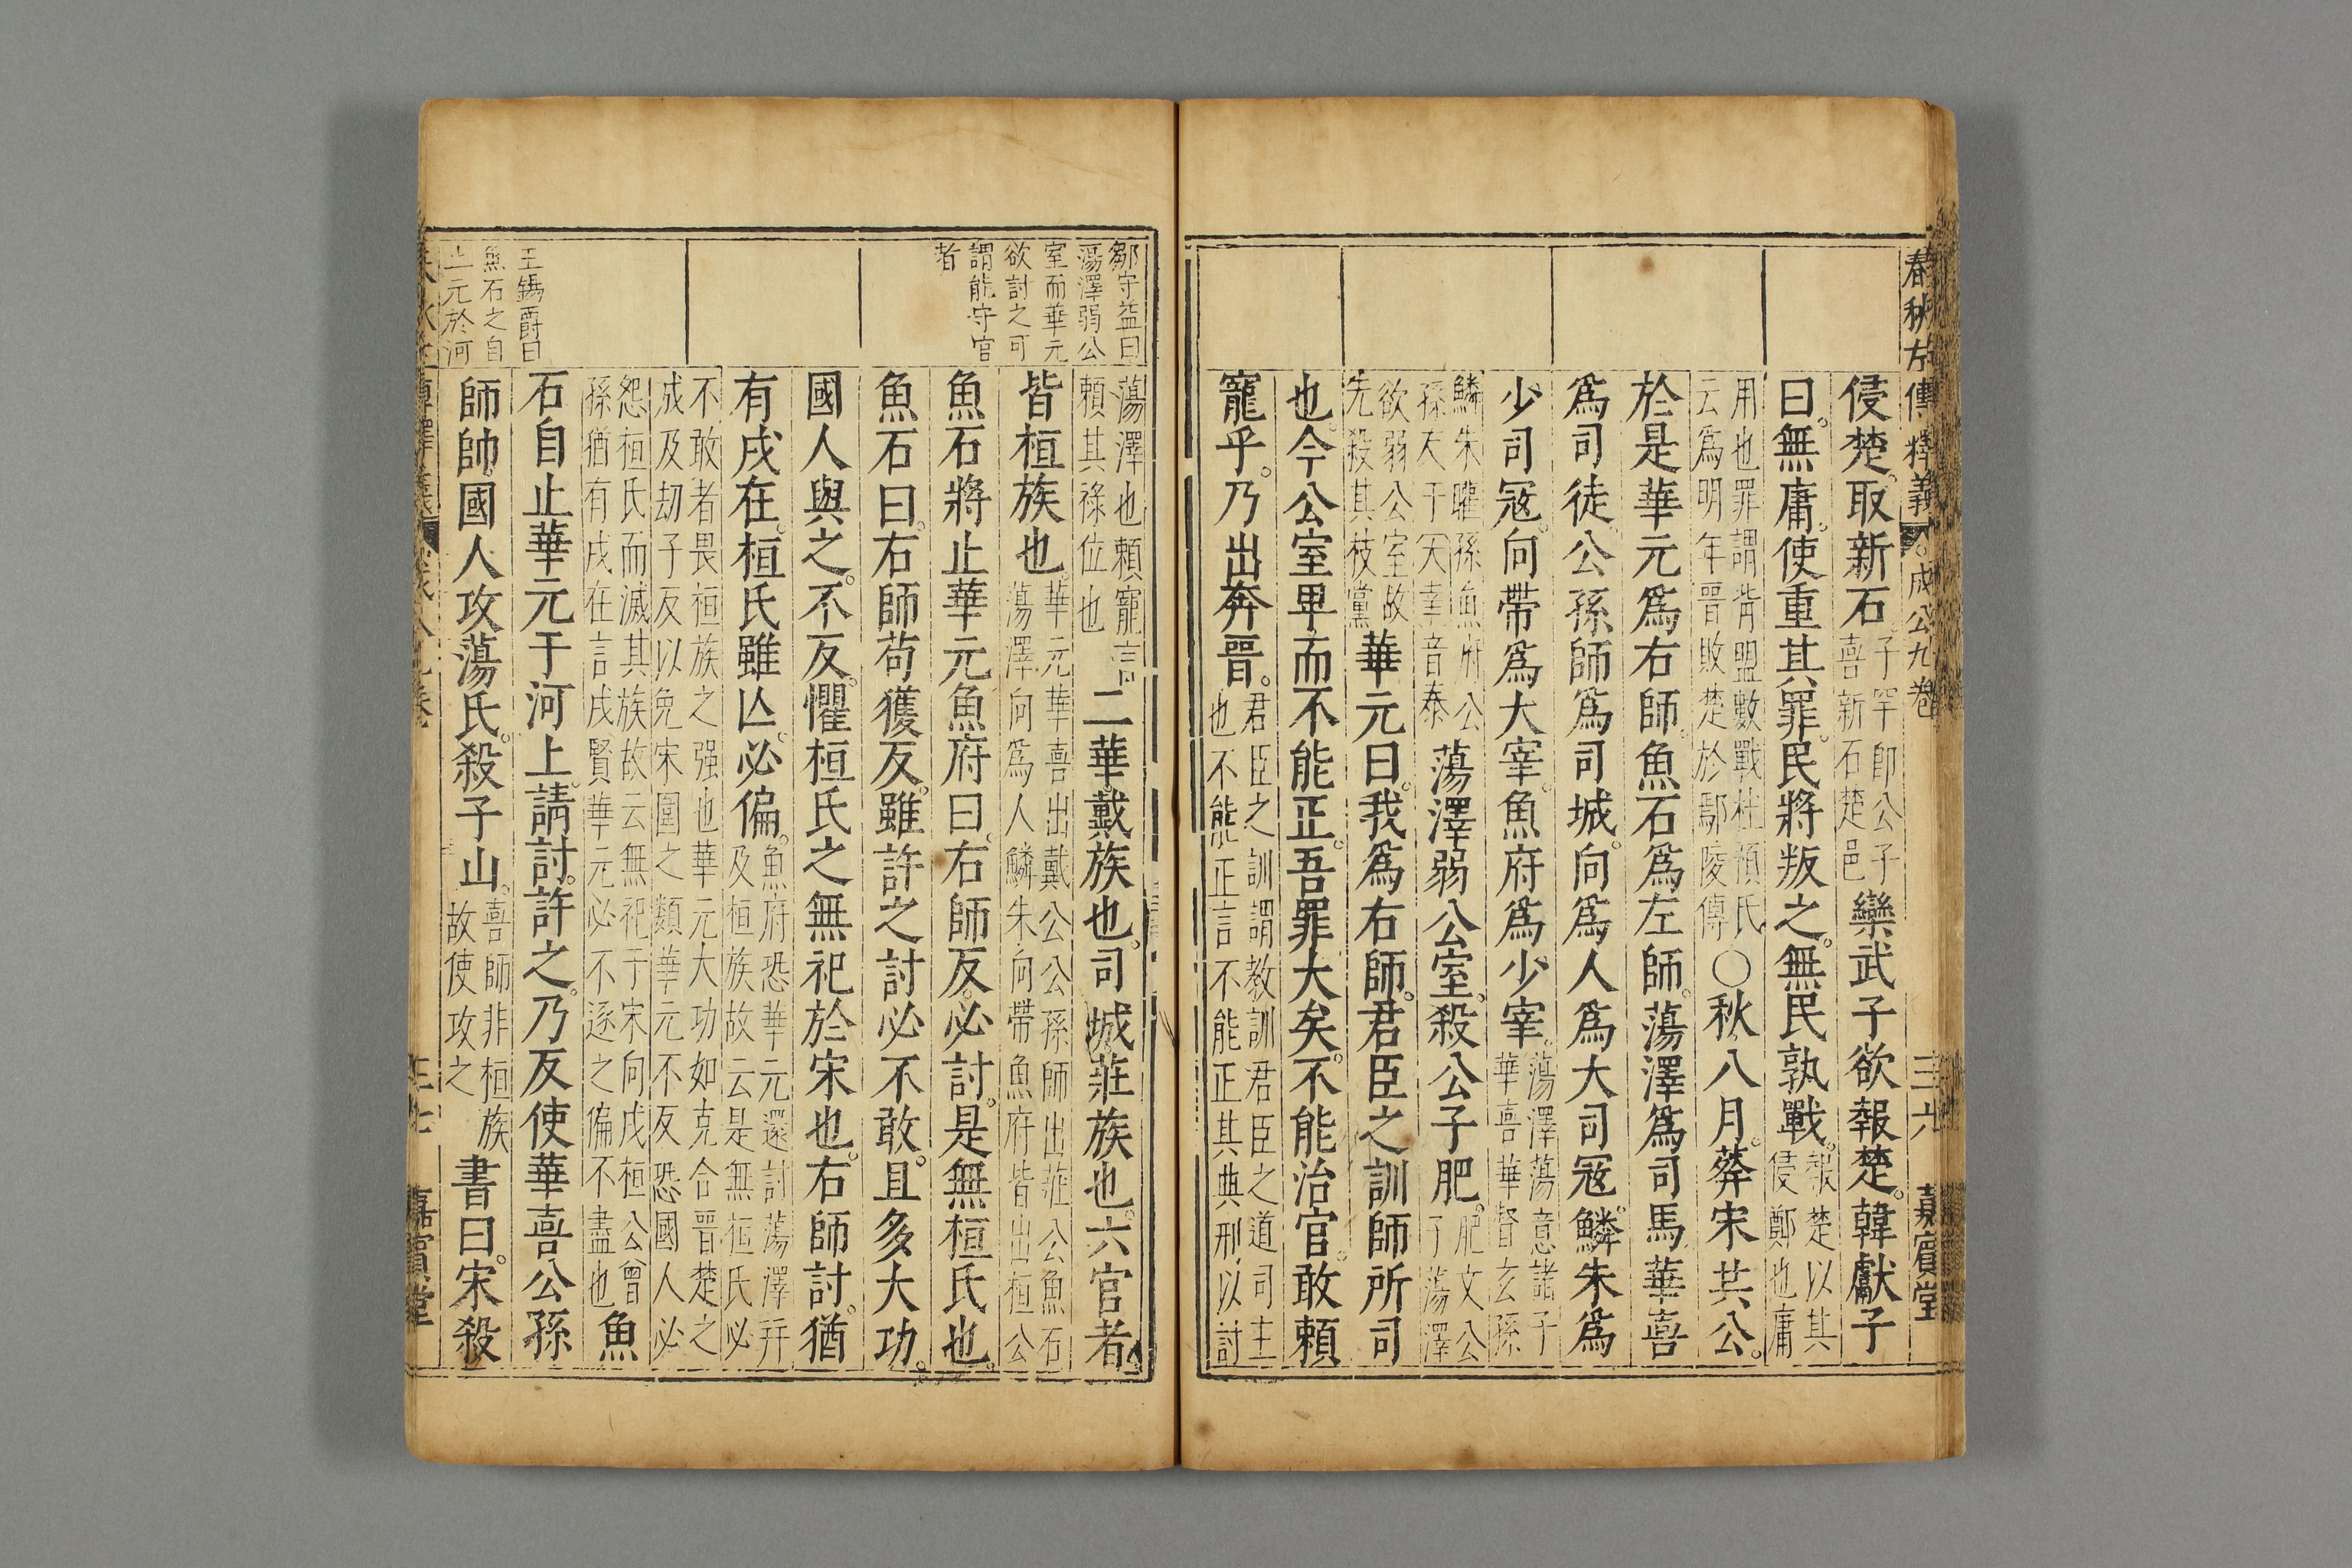 春秋左傳釋義 成公九卷 三六 嘉賓堂
侵楚取新石子罕卽公子喜新石楚邑欒武子欲報楚韓獻子
曰無庸使重其罪民將叛之無民孰戰報楚以其侵鄭也庸
用也罪謂背盟數戰杜預氏云爲明年晉敗楚於鄢陵傳○秋八月葬宋共公
於是華元爲右師魚石爲左師蕩澤爲司馬華喜
爲司徒公孫師爲司城向爲人爲大司寇鱗朱爲
少司寇向帶爲大宰魚府爲少宰蕩澤蕩意諸子華喜華督玄孫
鱗朱矔孫魚府公孫友子大宰音泰蕩澤弱公室殺公子肥肥文公子蕩澤
欲弱公室故先殺其枝黨華元曰我爲右師君臣之訓師所司
也今公室卑而不能正吾罪大矣不能治官敢賴
寵乎乃出奔晉君臣之訓謂教訓君臣之道司主也不能正言不能正其典刑以討
鄒守益曰
蕩澤弱公
室而華元
欲討之可
謂能守官
者
蕩澤也賴寵言賴其祿位也二華戴族也司城莊族也六官者
皆桓族也華元華喜出戴公公孫師出莊公魚石蕩澤向爲人鱗朱向帶魚府皆出桓公
魚石將止華元魚府曰右師反必討是無桓氏也
魚石曰右師苟獲反雖許之討必不敢且多大功
國人與之不反懼桓氏之無祀於宋也右師討猶
有戌在桓氏雖亡必偏魚府恐華元還討蕩澤并及桓族故云是無桓氏必
不敢者畏桓族之强也華元大功如克合晉楚之成及劫子反以免宋圍之類華元不反恐國人必
怨桓氏而滅其族故云無祀于宋向戌桓公曾孫猶有戌在言戌賢華元必不逐之偏不盡也魚
石自止華元于河上請討許之乃反使華喜公孫
師帥國人攻蕩氏殺子山喜師非桓族故使攻之書曰宋殺
王錫爵曰
魚石之自
止元於河
三七 嘉賓堂